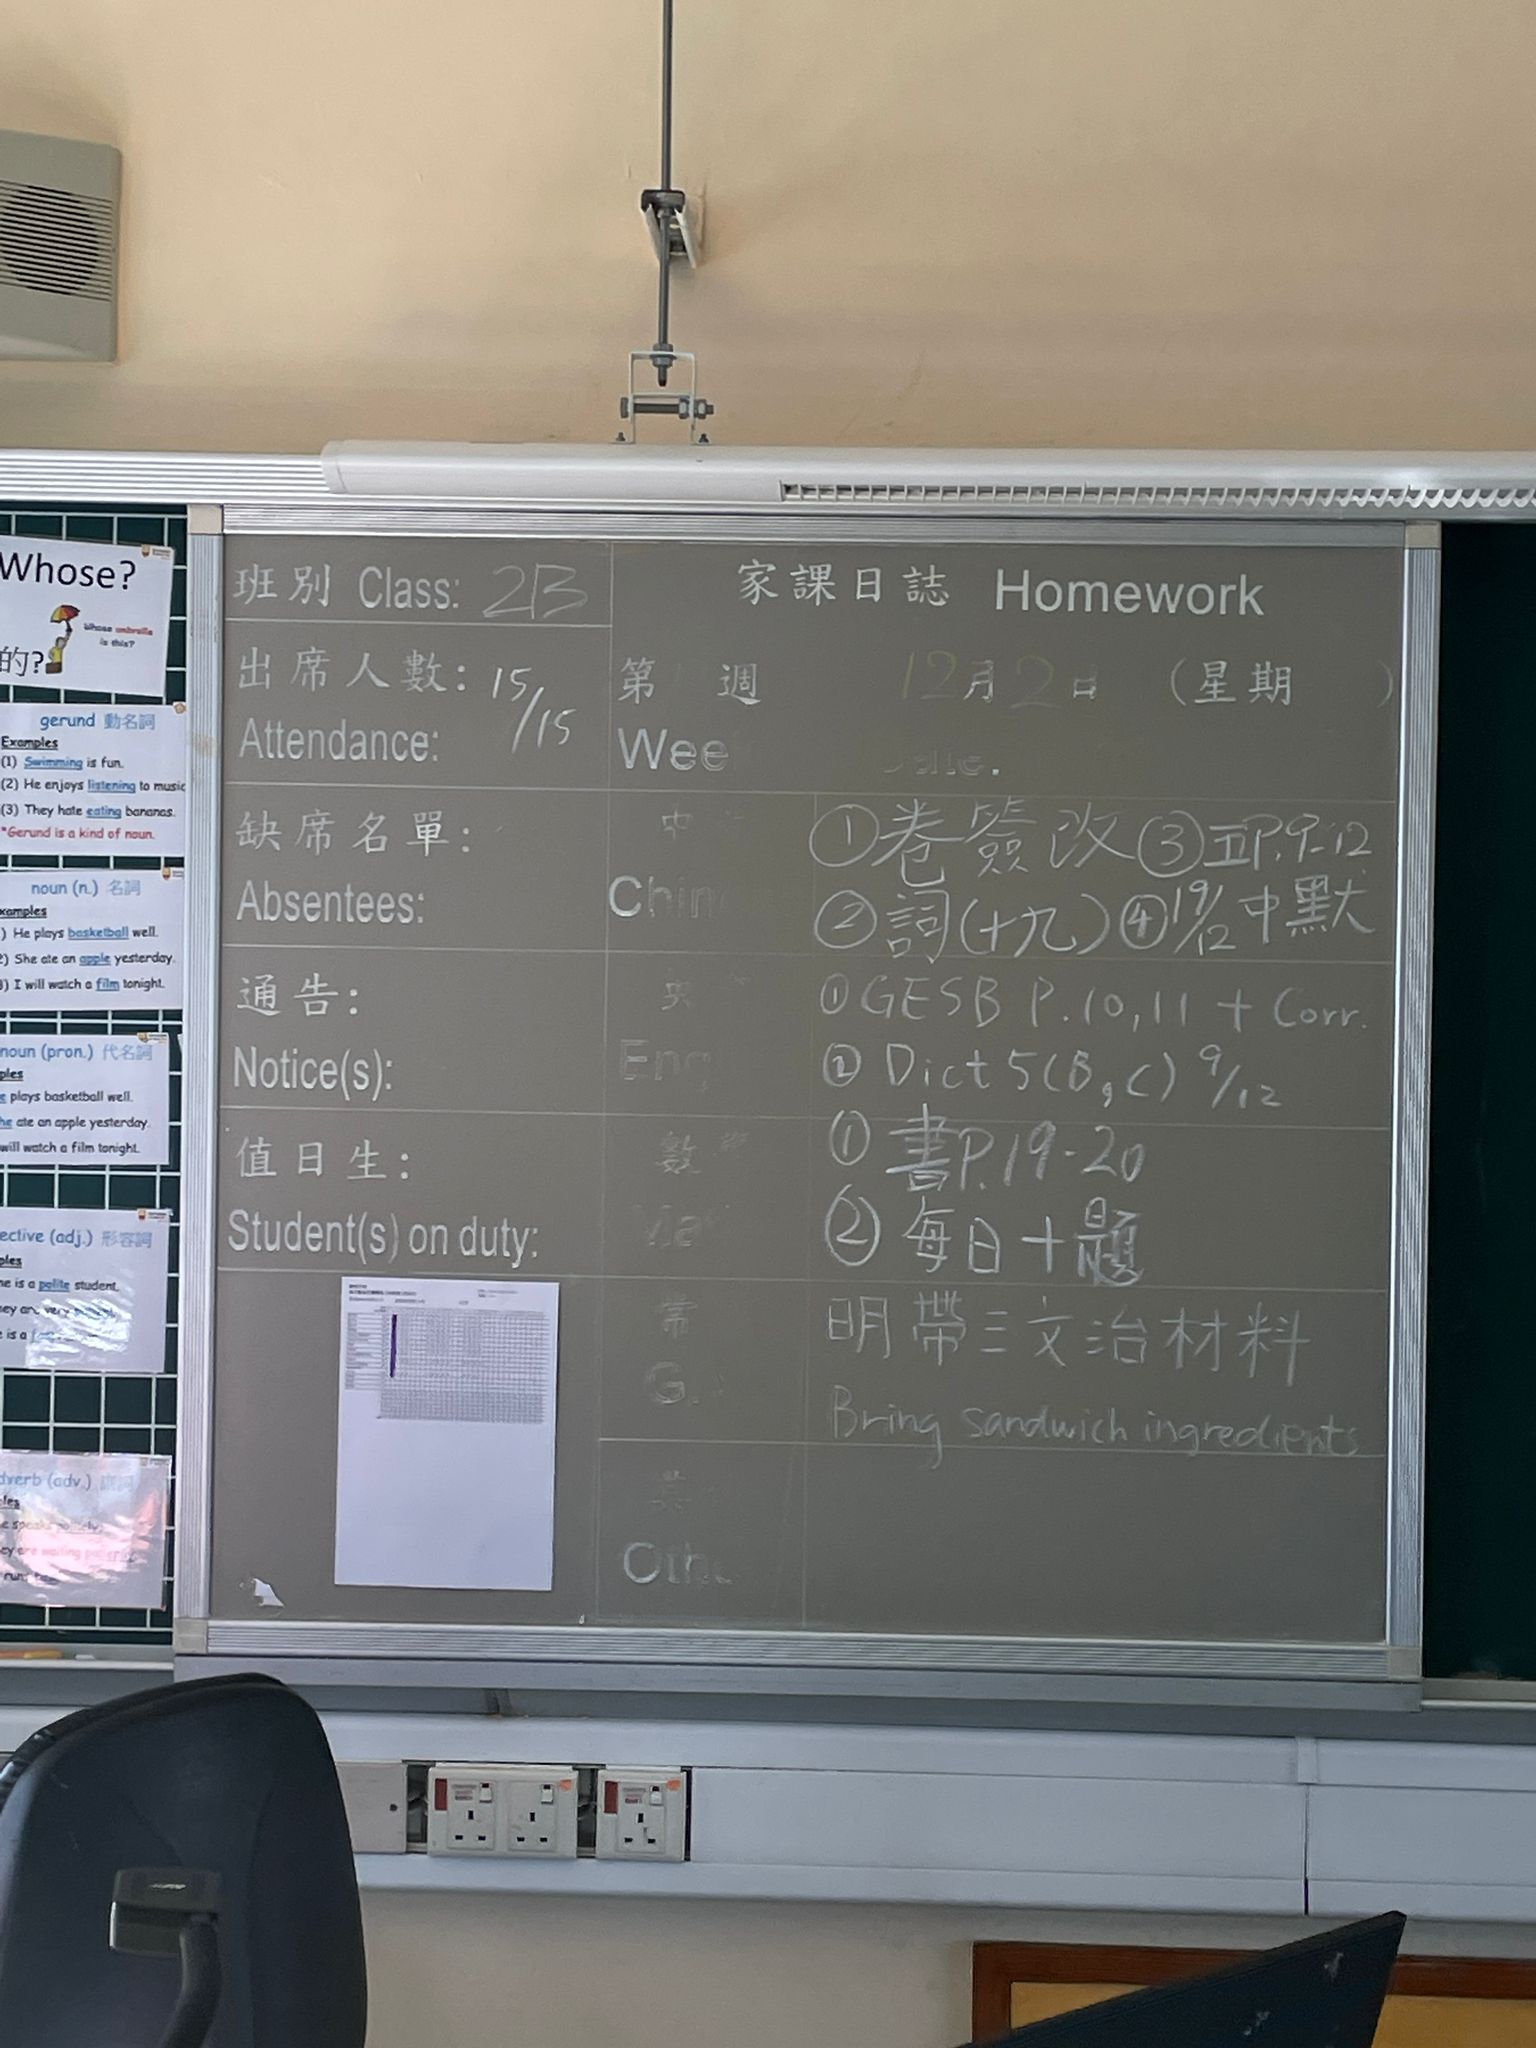 Whose?
Whose umbrella
is this?
的?
gerund 動名詞
Examples
(1) Swimming is fun.
(2) He enjoys listening to music
(3) They hate eating bananas.
*Gerund is a kind of noun.
noun (n.) 名詞
xamples
) He plays basketball well.
2) She ate an apple yesterday.
) I will watch a film tonight.
noun (pron.) 代名詞
ples
plays basketball well.
he ate an apple yesterday.
will watch a film tonight.
ective (adj.) 形容詞
ples
ne is a polite student.
hey are very
e is a
dverb (adv.)
les
班別 Class: 2B
出席人數: 15/15
Attendance:
缺席名單:
Absentees:
通告:
Notice(s):
值日生:
Student(s) on duty:
家課日誌 Homework
第 週 12月2日 (星期 )
Wee
①卷簽改 ③五P.9-12
Chin
②詞(十九) ④19/12中默
①GESB P.10,11 + Corr.
Eng
② Dict 5(B,C) 9/12
數
① 書P.19-20
② 每日十題
常
明帶三文治材料
G.
Bring sandwich ingredients
其
Othe